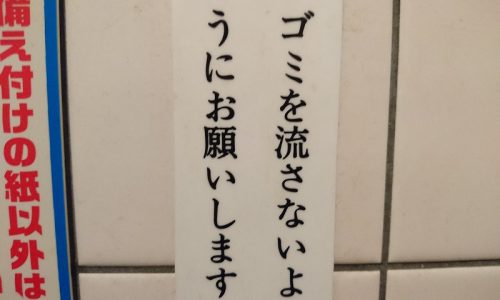 ゴミを流さないよ
うにお願いします
備え付けの紙以外は